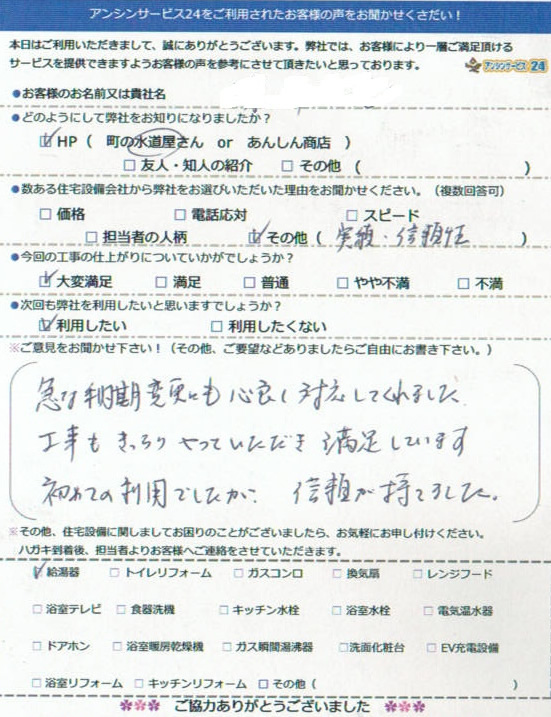 アンシンサービス24をご利用されたお客様の声をお聞かせください！
本日はご利用いただきまして、誠にありがとうございます。弊社では、お客様により一層ご満足頂ける
サービスを提供できますようお客様の声を参考にさせて頂きたいと思っております。
アンシンサービス24
●お客様のお名前又は貴社名
●どのようにして弊社をお知りになりましたか？
☑HP（ 町の水道屋さん or あんしん商店 ）
□友人・知人の紹介 □その他（ ）
●数ある住宅設備会社から弊社をお選びいただいた理由をお聞かせください。（複数回答可）
□価格 □電話応対 □スピード
□担当者の人柄 ☑その他（ 実績・信頼性 ）
●今回の工事の仕上がりについていかがでしょうか？
☑大変満足 □満足 □普通 □やや不満 □不満
●次回も弊社を利用したいと思いますでしょうか？
☑利用したい □利用したくない
※ご意見をお聞かせ下さい！（その他、ご要望などありましたらご自由にお書き下さい。）
急な 期変更にも 心良く対応してくれました
工事も きっちり やっていただき 満足しています
初めての利用でしたが、 信頼が持てました。
※その他、住宅設備に関しましてお困りのことがございましたら、お気軽にお申し付けください。
ハガキ到着後、担当者よりお客様へご連絡をさせていただきます。
☑給湯器 □トイレリフォーム □ガスコンロ □換気扇 □レンジフード
□浴室テレビ □食器洗機 □キッチン水栓 □浴室水栓 □電気温水器
□ドアホン □浴室暖房乾燥機 □ガス瞬間湯沸器 □洗面化粧台 □EV充電設備
□浴室リフォーム □キッチンリフォーム □その他（ ）
ご協力ありがとうございました